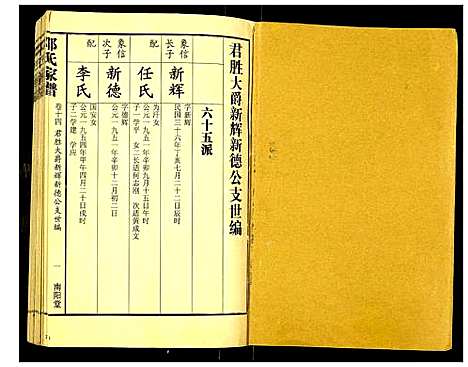 君胜大爵新辉新德公支世编
六十五派
象信长子
新辉
字新辉
民国三十六年丁亥七月二十二日辰时
配
任氏
为开女
公元一九五一年辛卯九月十五日午时
子一学平 女二长适何志刚 次适黄成文
象信次子
新德
字德辉
公元一九五一年辛卯十二月初二日
配
李氏
国安女
公元一九五四年甲午四月二十日戌时
子二学建 学应
邓氏家谱
卷十四 君胜大爵新辉新德公支世编
一
南阳堂